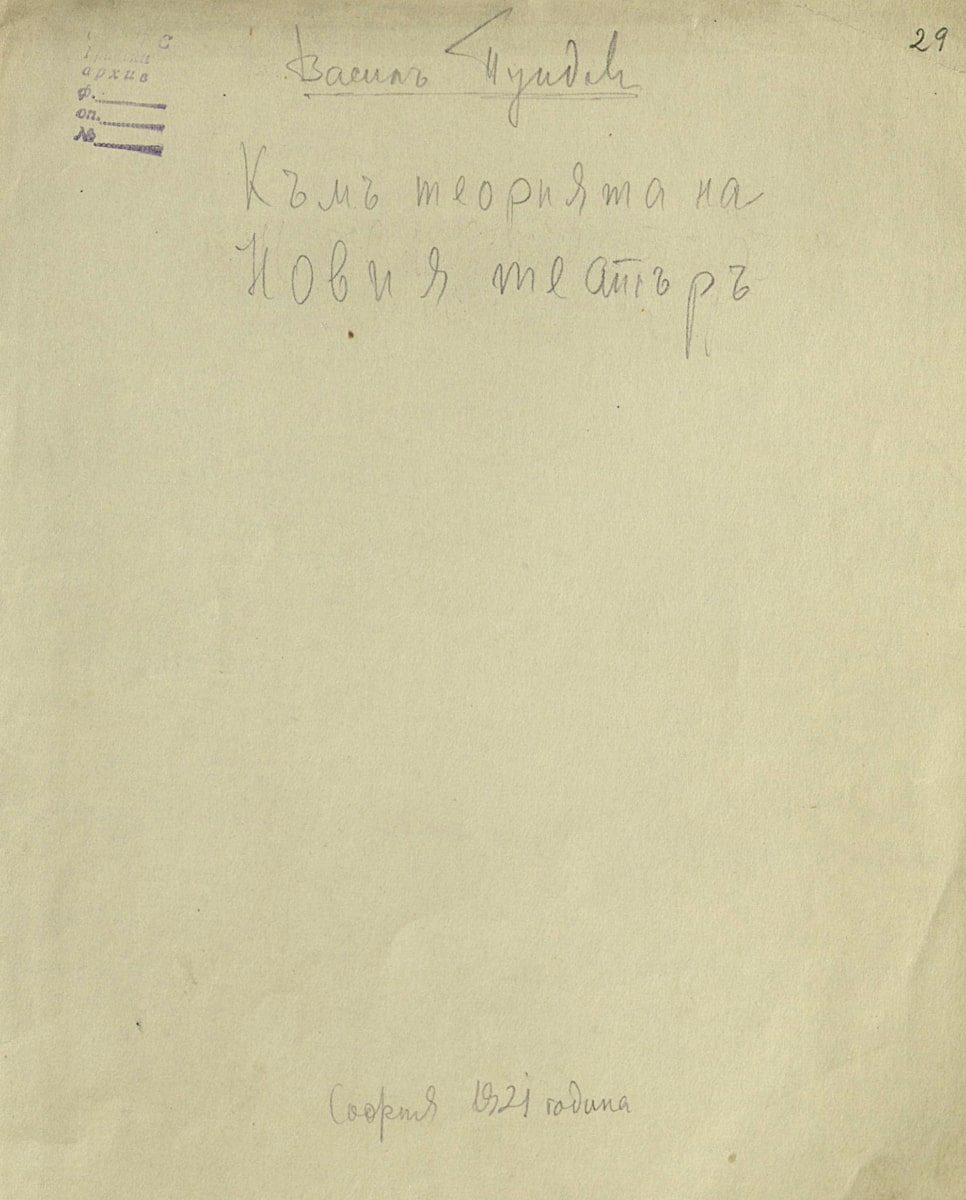 29
архив
ф.
оп.
№
Василъ Пундев
Къмъ теорията на
Новия театъръ
София 1921 година